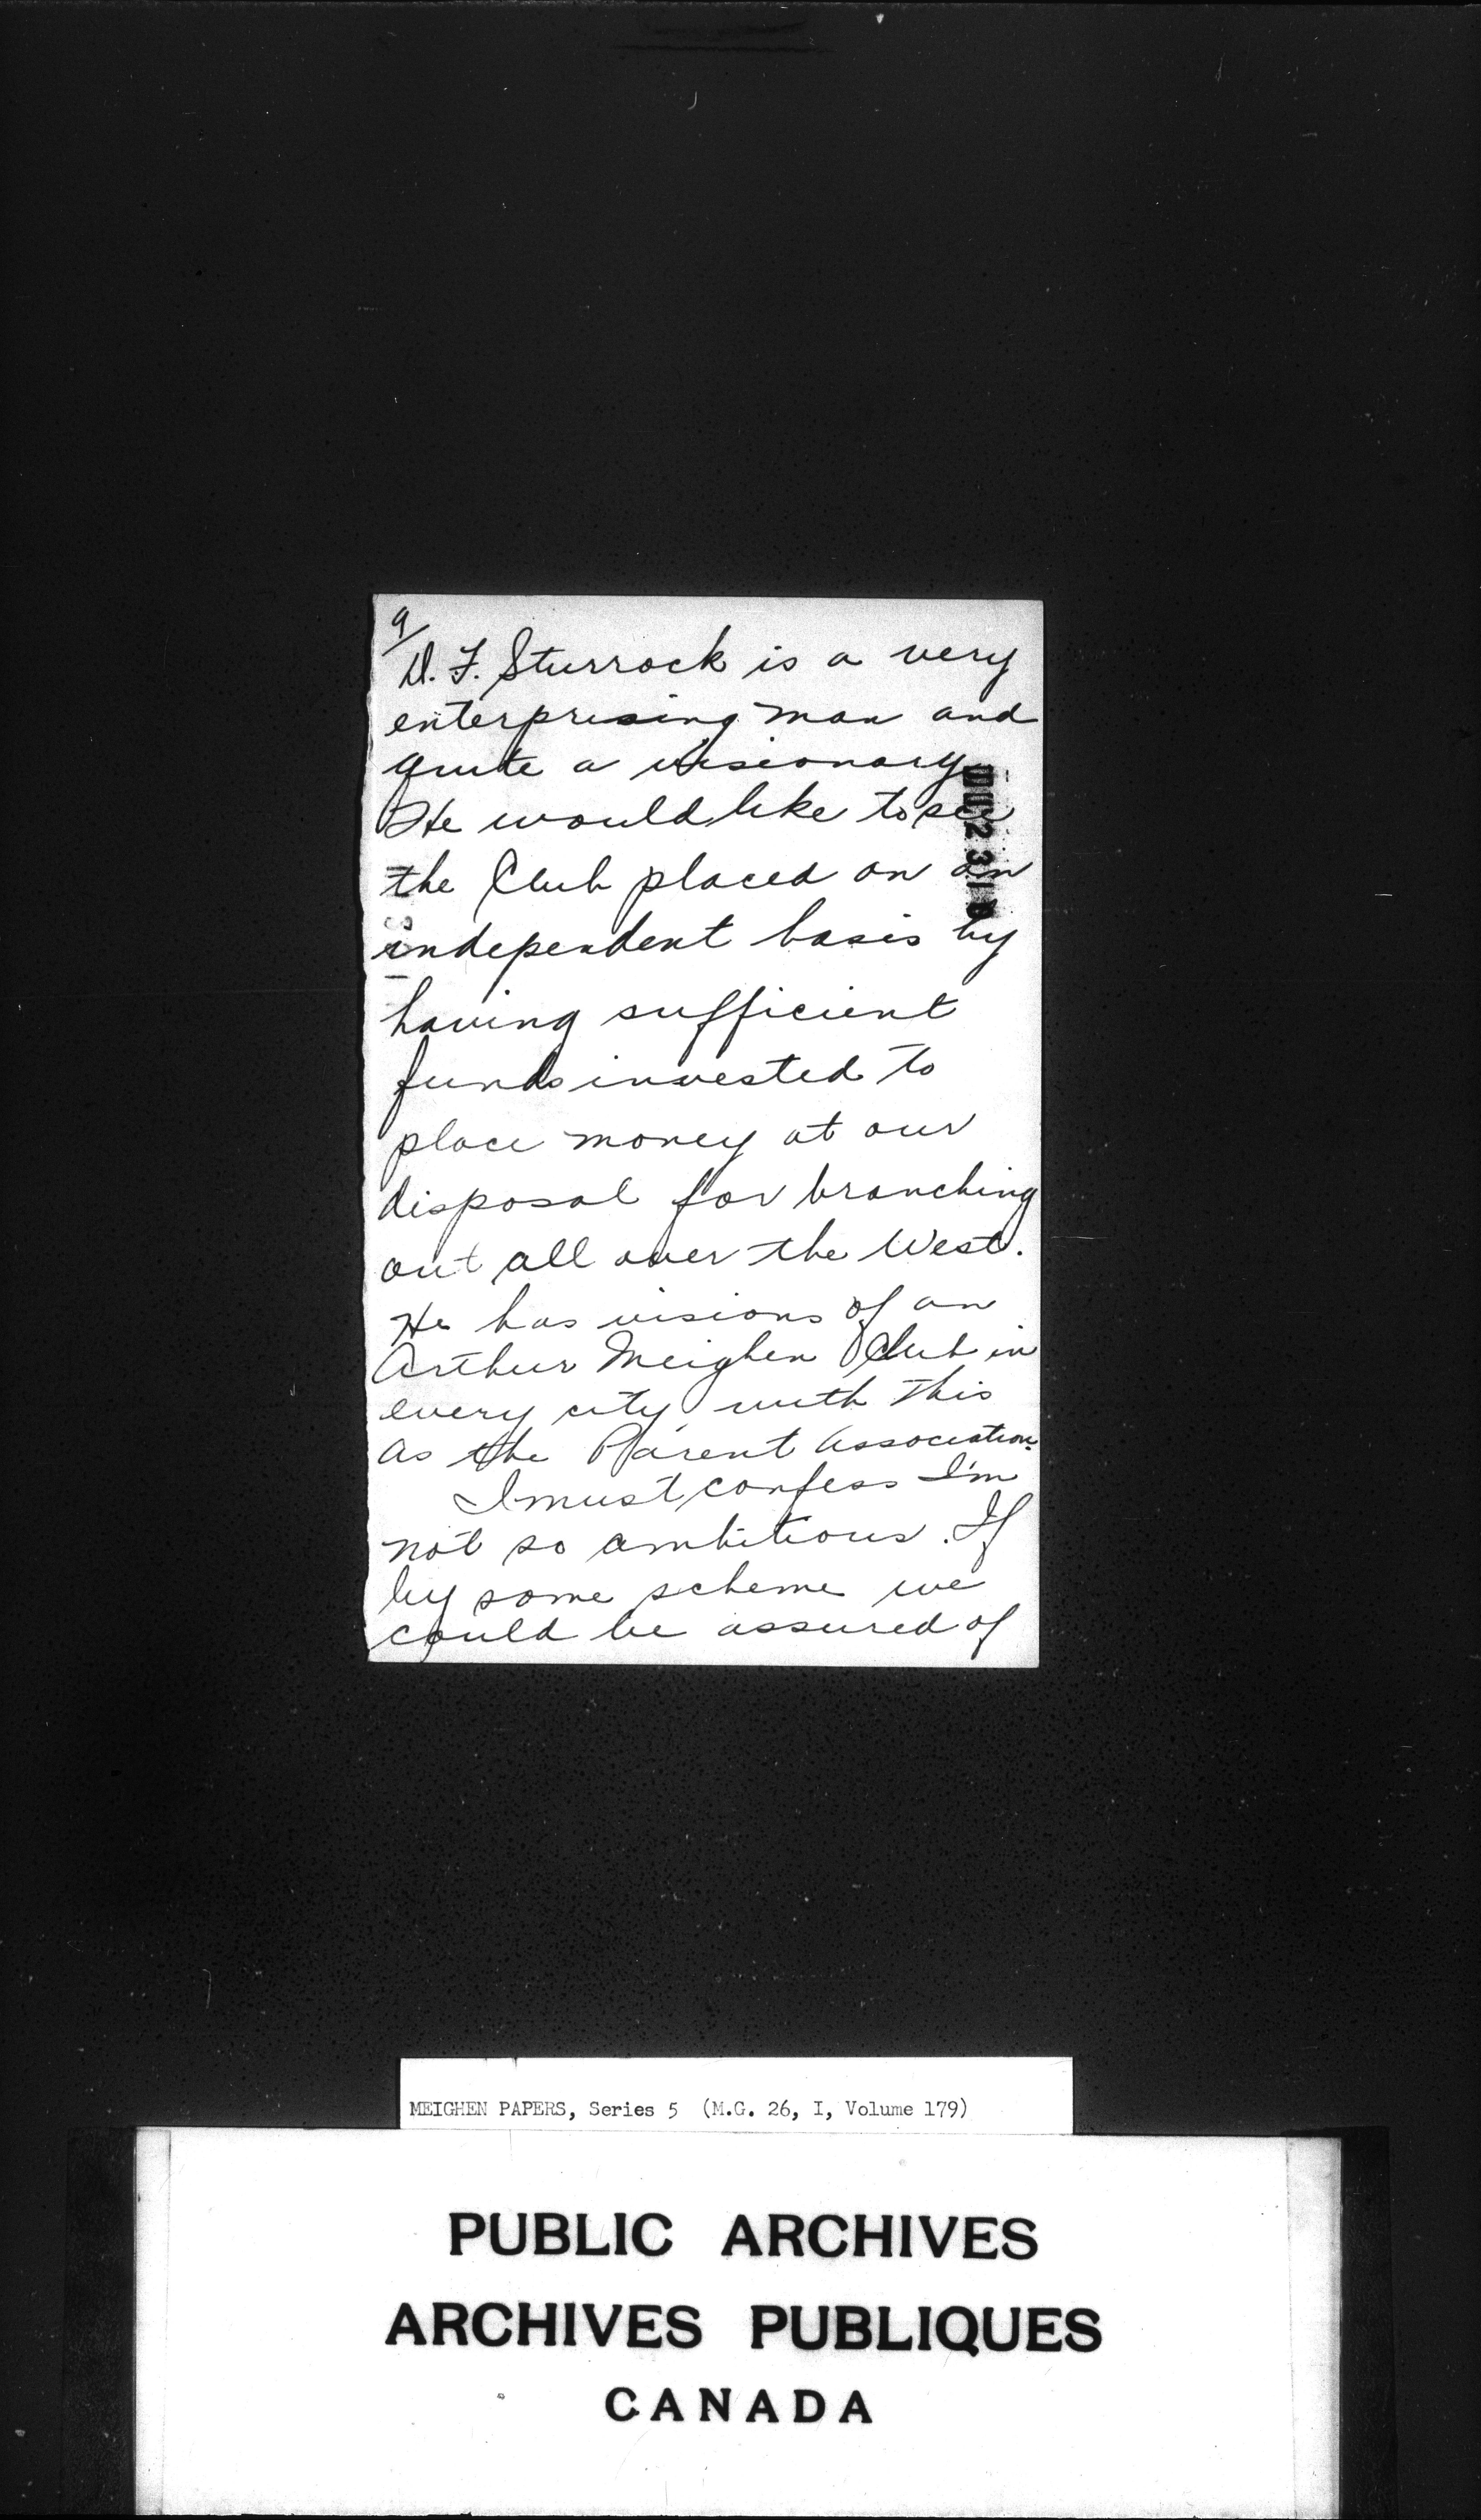 9/
D. F. Sturrock is a very
enterprising man and
quite a visionary.
He would like to see
the Club placed on an
independent basis by
having sufficient
funds invested to
place money at our
disposal for branching
out all over the West.
He has visions of an
Arthur Meighen Club in
every city with this
as the Parent Association.
I must confess I'm
not so ambitious. If
by some scheme we
could be assured of
MEIGHEN PAPERS, Series 5 (M.G. 26, I, Volume 179)
PUBLIC ARCHIVES
ARCHIVES PUBLIQUES
CANADA